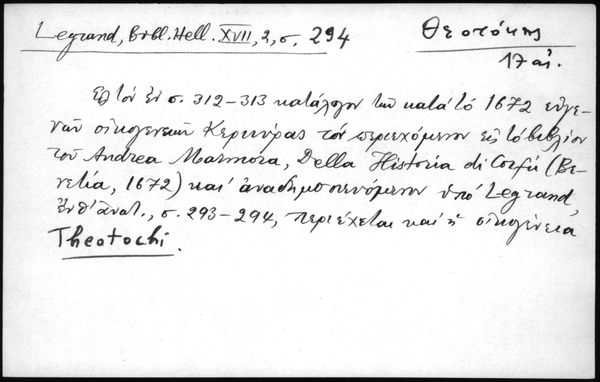 Legrand, Bibl. Hell. XVII, 2, σ. 294
Θεοτόκης
17 αἰ.
Εἰς τὸν ἐν σ. 312-313 κατάλογον τῶν κατὰ τὸ 1672 εὐγε-
νῶν οἰκογενειῶν Κερκύρας τὸν περιεχόμενον εἰς τὸ βιβλίον
τοῦ Andrea Marmora, Della Historia di Corfú (Βε-
νετία, 1672) καὶ ἀναδημοσιευόμενον ὑπὸ Legrand,
ἔνθ' ἀνωτ., σ. 293-294, περιέχεται καὶ ἡ οἰκογένεια
Theotochi.